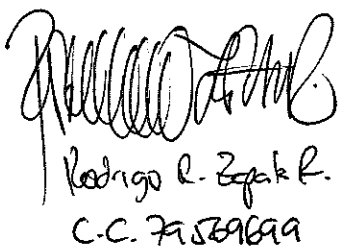 Rodrigo R. Zapata R.
C.C. 79569699